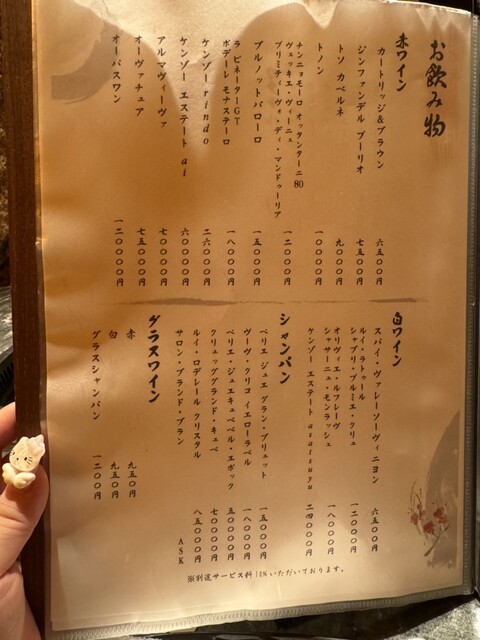 お飲み物
赤ワイン
カートリッジ&ブラウン 六五〇〇円
ジンファンデル ブーリオ 七五〇〇円
トソ カベルネ 九〇〇〇円
トノン 一〇〇〇〇円
チンニョモーロ オッタンターニ 80
ヴェッキエ・ヴィーニュ
プリミティーヴォ・ディ・マンドゥーリア 一二〇〇〇円
ブルノットバローロ 一五〇〇〇円
ラピネーターGT
ポデーレ モナステーロ 一八〇〇〇円
ケンゾー rindo 二六〇〇〇円
ケンゾー エステート ai 六〇〇〇〇円
アルマヴィーヴァ 七〇〇〇〇円
オーヴァチュア 七五〇〇〇円
オーパスワン 一二〇〇〇〇円
白ワイン
スパイ・ヴァレーソーヴィニヨン 六五〇〇円
ルイ・ラトゥール
シャブリ・プルミエ・クリュ 一二〇〇〇円
オリヴィエ・ルフレーヴ
シャサーニュ・モンラッシェ 一八〇〇〇円
ケンゾー エステート asatsuyu 二四〇〇〇円
シャンパン
ペリエ ジュエ グラン・ブリュット 一五〇〇〇円
ヴーヴ・クリコ イエローラベル 一八〇〇〇円
ペリエ・ジュエキュベベル・エポック 五〇〇〇〇円
クリュッググランド・キュベ 七〇〇〇〇円
ルイ・ロデレール クリスタル 八五〇〇〇円
サロン・ブランド・ブラン ASK
グラスワイン
赤 九五〇円
白 九五〇円
グラスシャンパン 一二〇〇円
※別途サービス料10%いただいております。